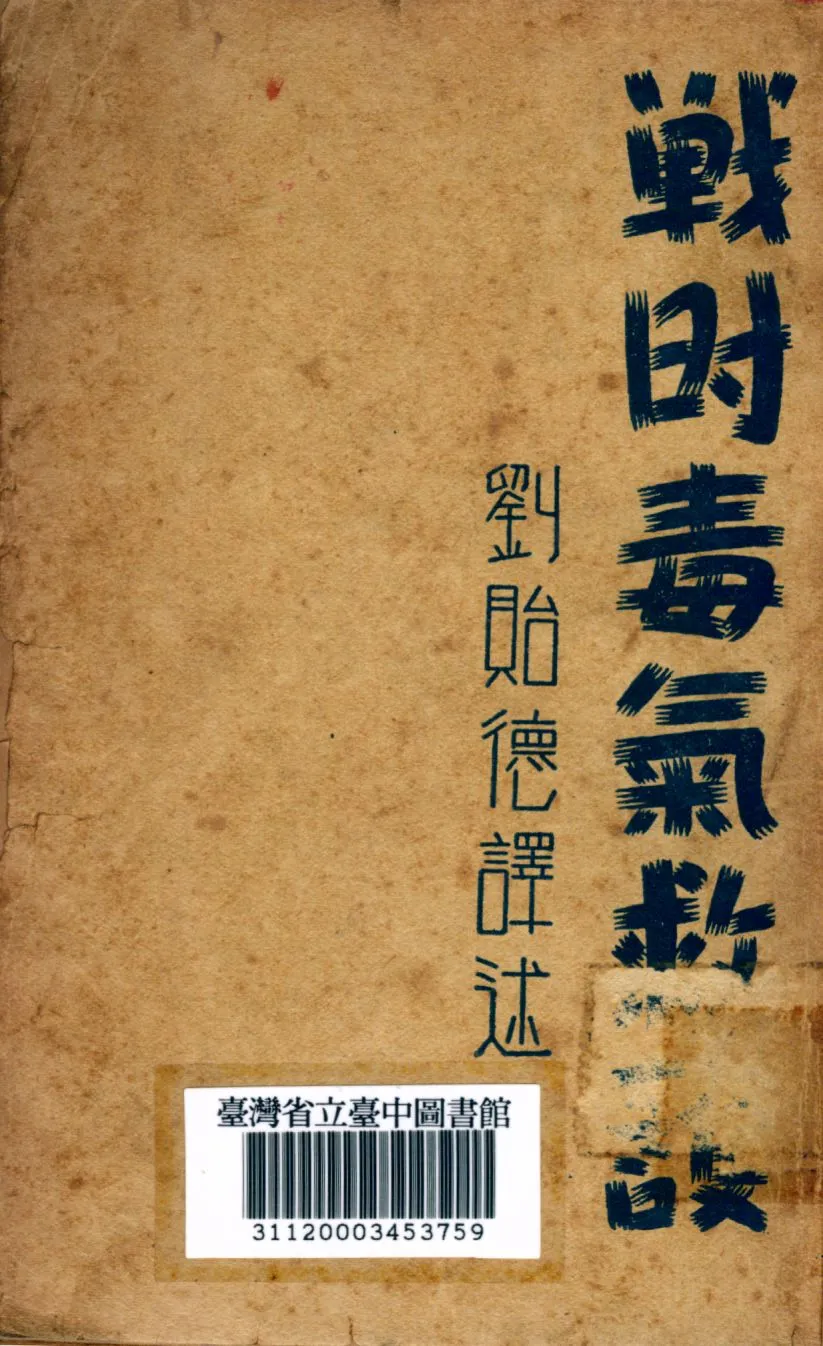 戦时毒氣救
劉貽德譯述
臺灣省立臺中圖書館
31120003453759